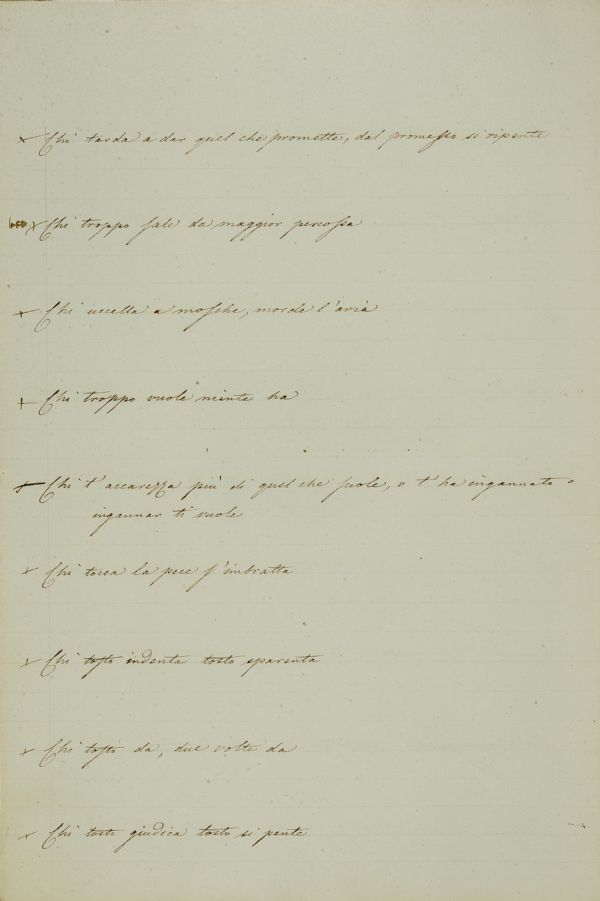 × Chi tarda a dar quel che promette, dal promeſso si ripente
× Chi troppo ſale da maggior percoſsa
× Chi uccella a moſche, morde l'aria
+ Chi troppo vuole niente ha
+ Chi t'accarezza più di quel che ſuole, o t'ha ingannato o
ingannar ti vuole
× Chi tocca la pece ſ'imbratta
× Chi toſto indenta tosto sparenta
× Chi toſto da, due volte da
× Chi tosto giudica tosto si pente